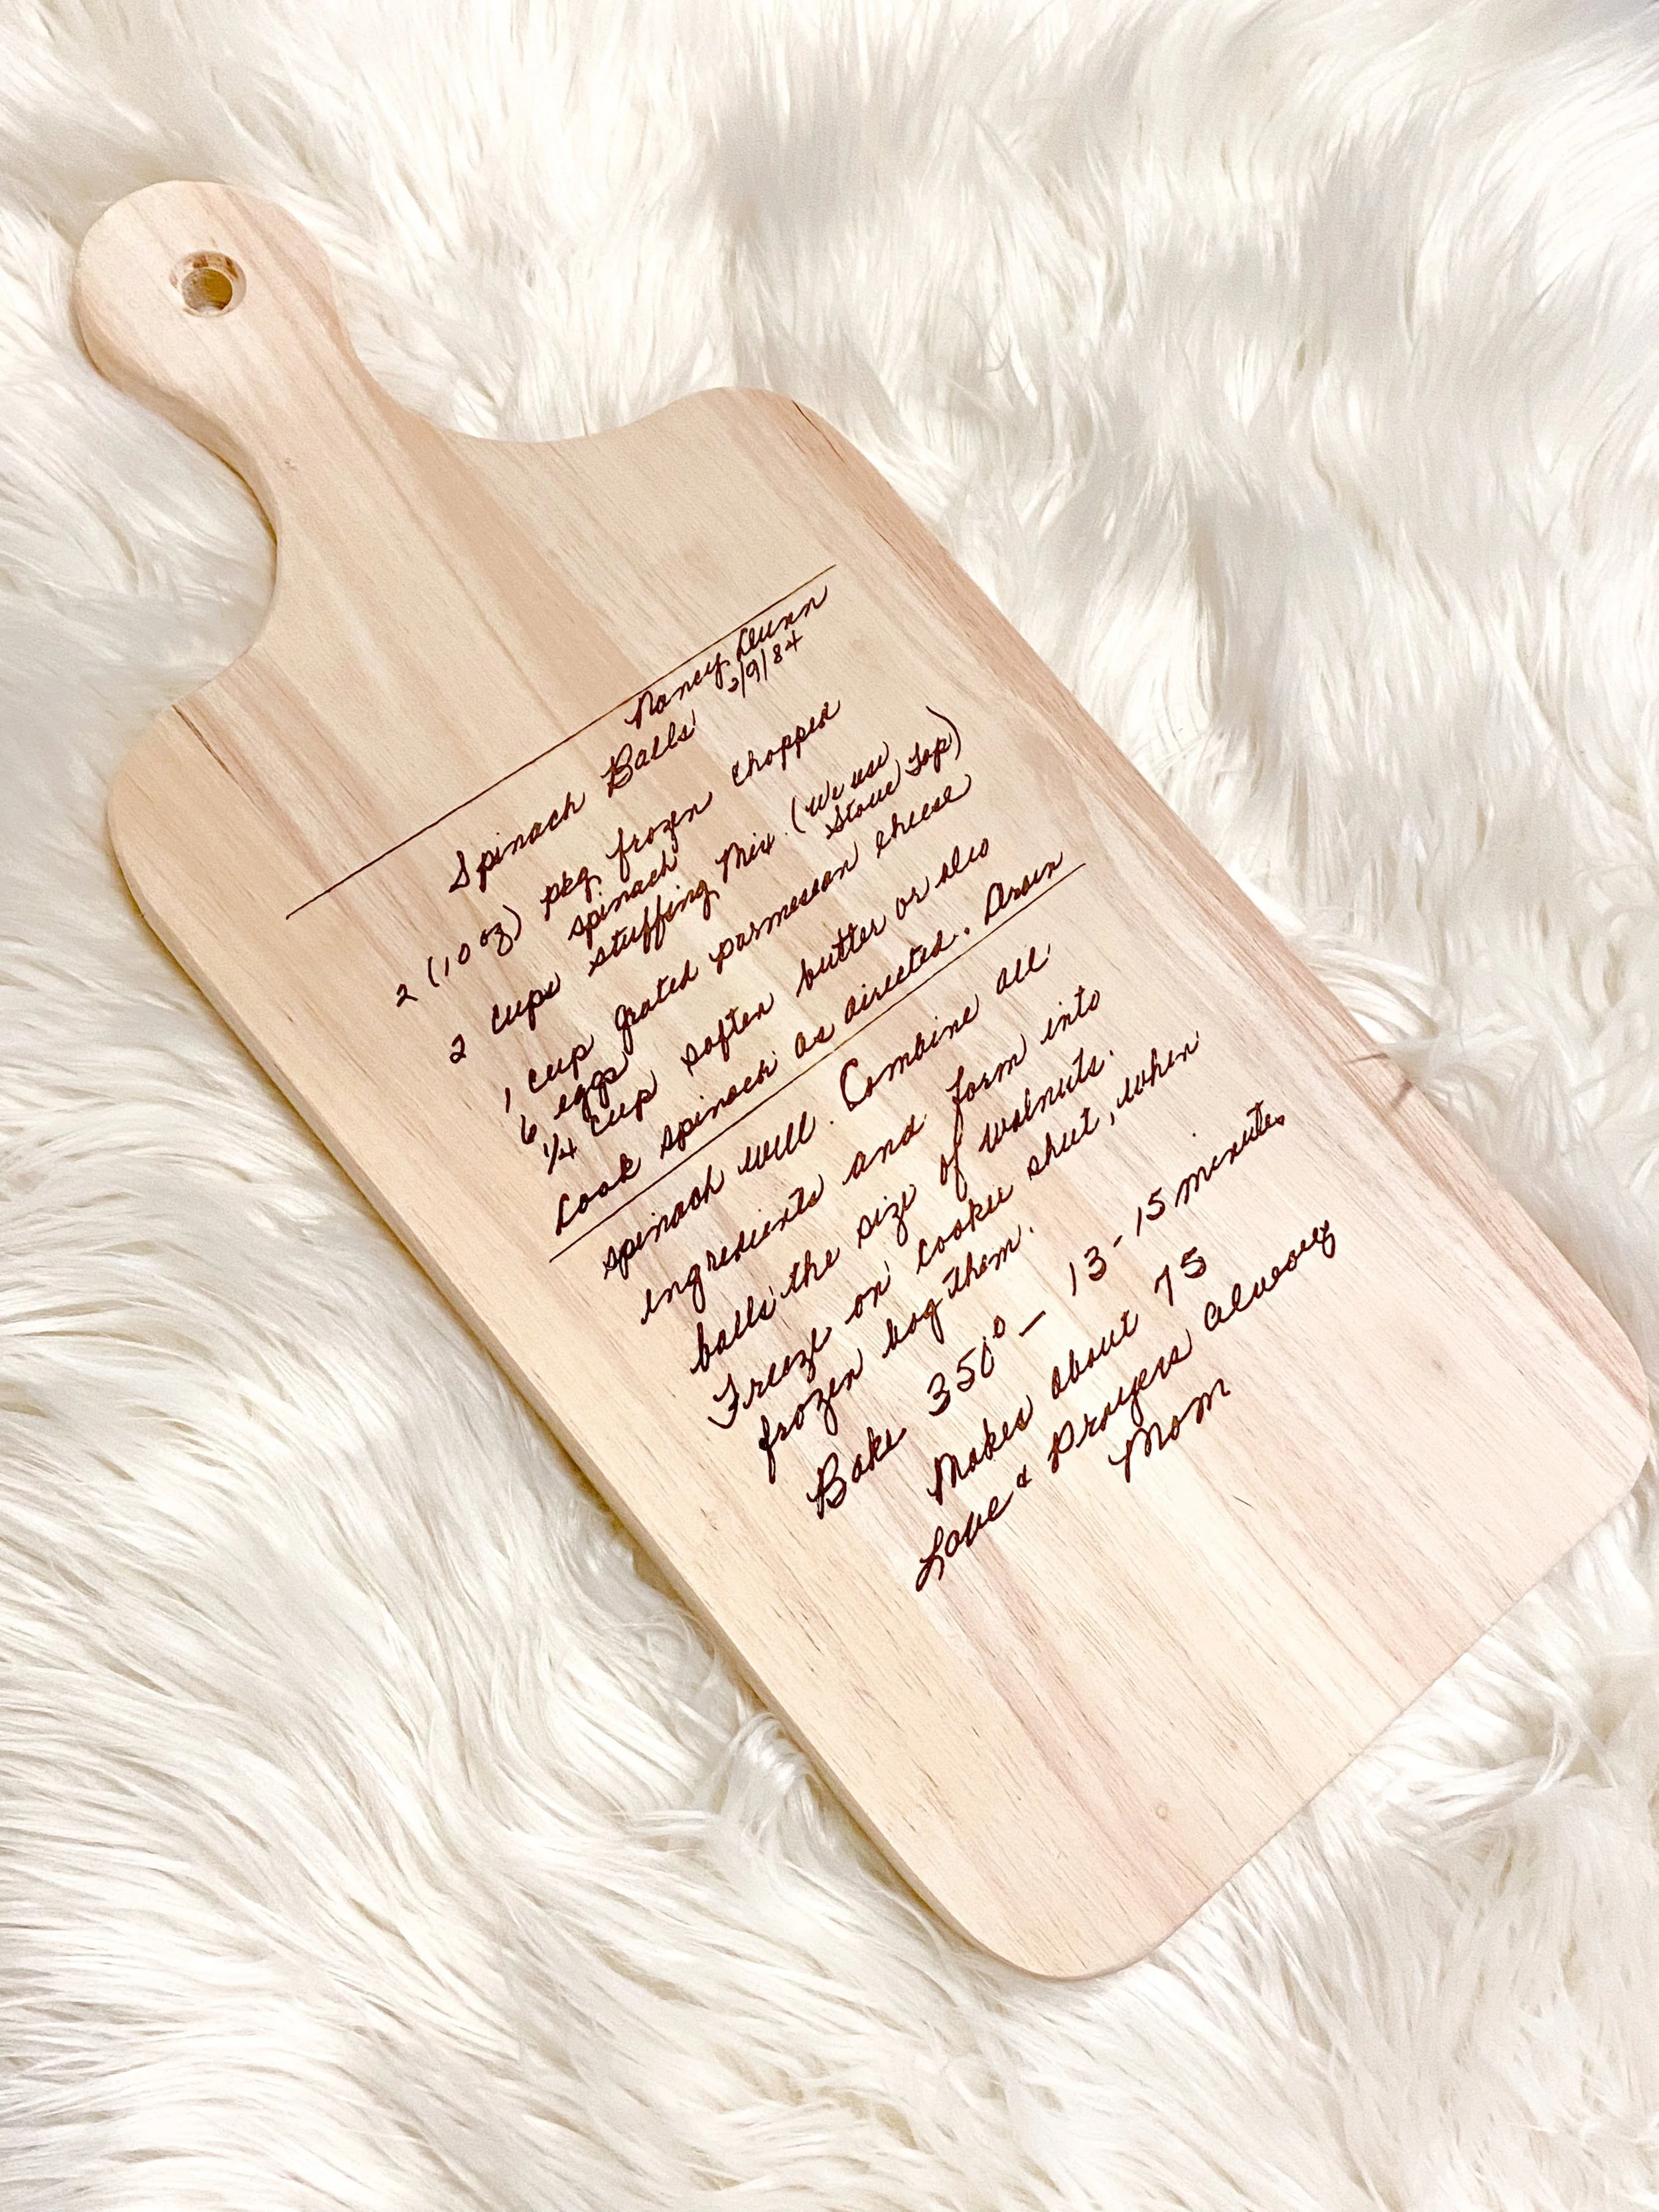 Nancy Dunn
Spinach Balls 2/9/84
2 (10 oz) pkg frozen chopped
spinach
2 cups stuffing Mix (We use
Stove Top)
1 cup grated parmesean cheese
6 eggs
1/4 cup soften butter or oleo
Cook spinach as directed. Drain
spinach well. Combine all
ingredients and form into
balls the size of walnuts.
Freeze on cookie sheet, when
frozen bag them.
Bake 350° - 13-15 minutes
Makes about 75
Love & Prayers always
Mom